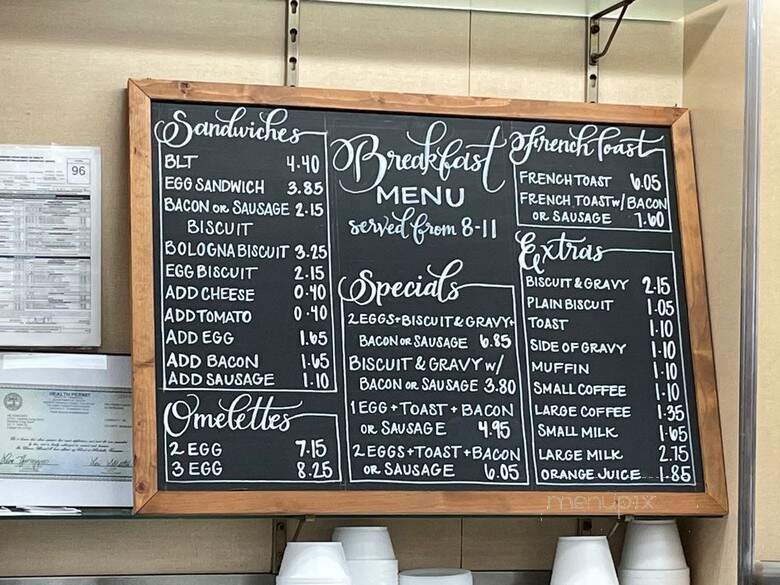 Breakfast
MENU
served from 8-11
Sandwiches
BLT 4.40
EGG SANDWICH 3.85
BACON OR SAUSAGE 2.15
BISCUIT
BOLOGNA BISCUIT 3.25
EGG BISCUIT 2.15
ADD CHEESE 0.40
ADD TOMATO 0.40
ADD EGG 1.65
ADD BACON 1.65
ADD SAUSAGE 1.10
Omelettes
2 EGG 7.15
3 EGG 8.25
Specials
2EGGS+BISCUIT&GRAVY+
BACON OR SAUSAGE 6.85
BISCUIT & GRAVY W/
BACON OR SAUSAGE 3.80
1EGG+TOAST+BACON
OR SAUSAGE 4.95
2EGGS+TOAST+BACON
OR SAUSAGE 6.05
French Toast
FRENCH TOAST 6.05
FRENCH TOAST W/ BACON
OR SAUSAGE 7.60
Extras
BISCUIT & GRAVY 2.15
PLAIN BISCUIT 1.05
TOAST 1.10
SIDE OF GRAVY 1.10
MUFFIN 1.10
SMALL COFFEE 1.10
LARGE COFFEE 1.35
SMALL MILK 1.65
LARGE MILK 2.15
ORANGE JUICE 1.85
96
HEALTH PERMIT
menupix